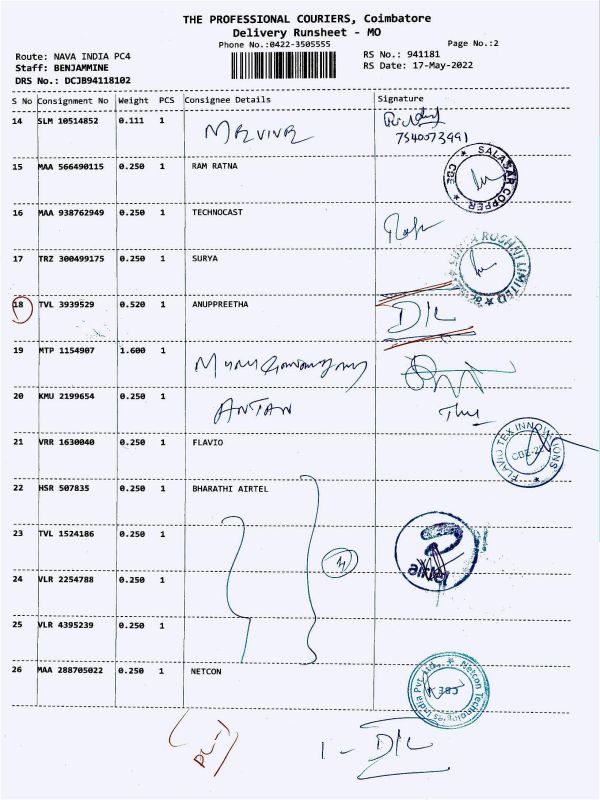 THE PROFESSIONAL COURIERS, Coimbatore
Delivery Runsheet - MO
Phone No.:0422-3505555
Page No.:2
Route: NAVA INDIA PC4
RS No.: 941181
Staff: BENJAMMINE
RS Date: 17-May-2022
DRS No.: DCJB94118102
S No Consignment No Weight PCS Consignee Details Signature
14 SLM 10514852 0.111 1
7540073991
15 MAA 566490115 0.250 1 RAM RATNA
SALASAR COPPER * CBE *
16 MAA 938762949 0.250 1 TECHNOCAST
17 TRZ 300499175 0.250 1 SURYA
SURYA ROSHNI LIMITED
18 TVL 3939529 0.520 1 ANUPPREETHA
D/L
19 MTP 1154907 1.600 1
20 KMU 2199654 0.250 1 ANTAN
21 VRR 1630040 0.250 1 FLAVIO
FLAVIO TEX INNOVATIONS
22 HSR 507835 0.250 1 BHARATHI AIRTEL
23 TVL 1524186 0.250 1
airtel
24 VLR 2254788 0.250 1
4
25 VLR 4395239 0.250 1
26 MAA 288705022 0.250 1 NETCON
Netcon Technologies India Pvt Ltd. * CBE
1 - D/L